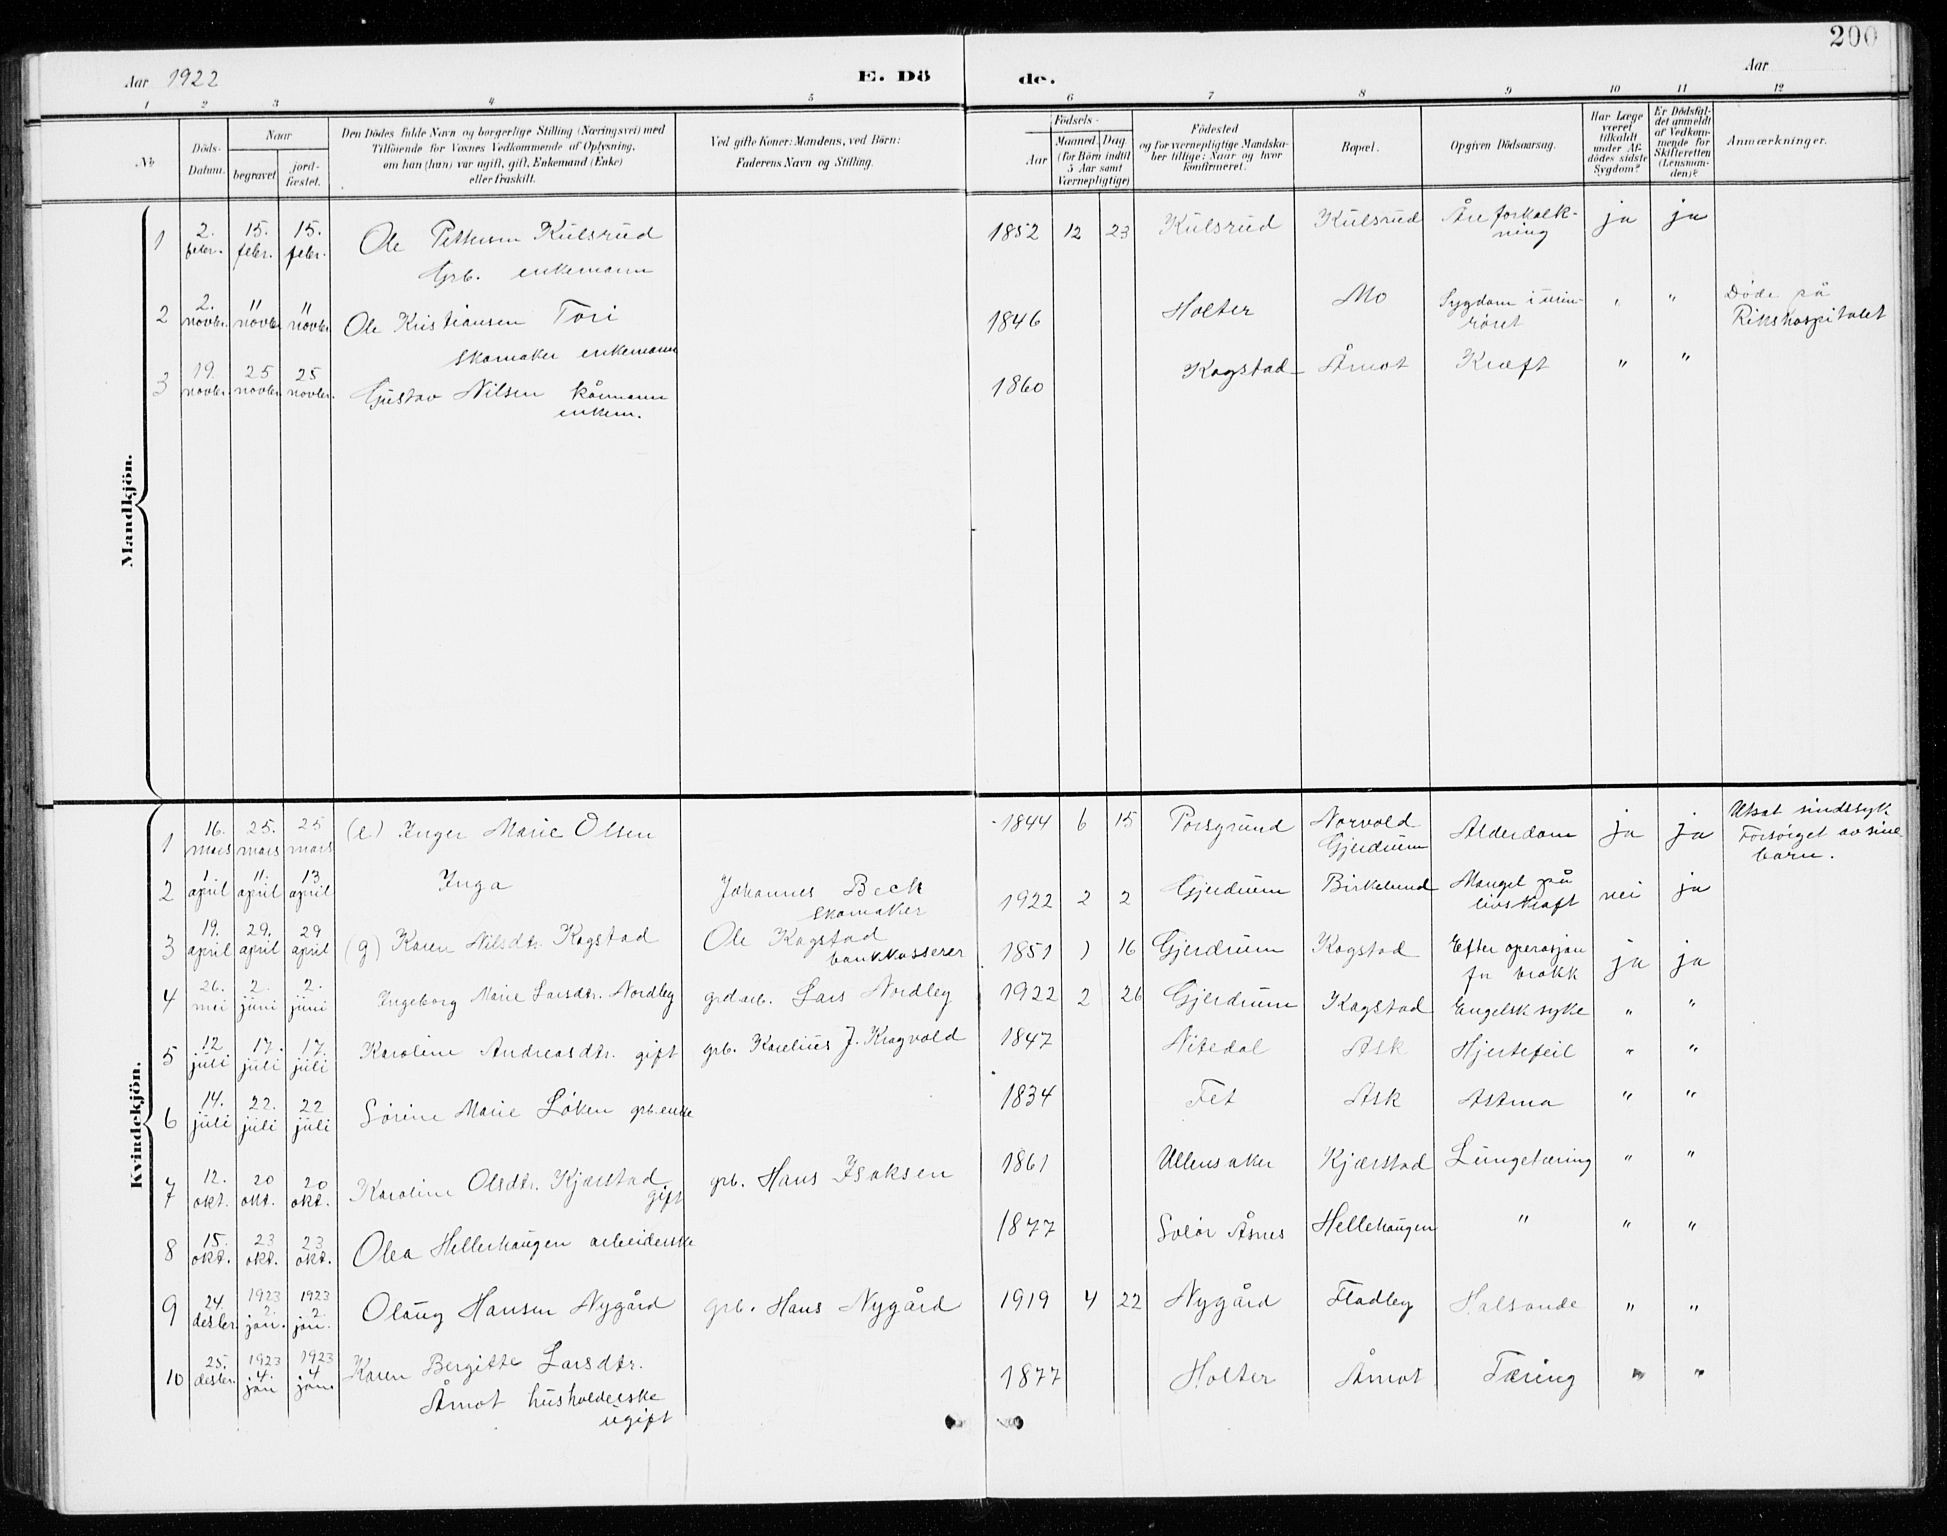 200
Aar 1922 E. Dö de. Aar
1 2 3 4 5 6 7 8 9 10 11 12
No
Döds-
Datum.
Naar
begravet
jord-
fæstet.
Den Dödes fulde Navn og borgerlige Stilling (Næringsvei) med
Tilföiende for Voxnes Vedkommende af Oplysning,
om han (hun) var ugift, gift, Enkemand (Enke)
eller fraskilt.
Ved gifte Koner: Mandens, ved Börn:
Faderens Navn og Stilling.
Födsels-
Aar
Maaned. Dag.
(for Börn indtil
5 Aar samt
Værnepligtige)
Födested
og for værnepligtige Mandska-
ber tillige: Naar og hvor
konfirmeret.
Bopæl.
Opgiven Dödsaarsag.
Har Læge
været
tilkaldt
under Af-
dödes sidste
Sygdom?
Er Dödsfal-
det anmeldt
af Vedkom-
mende for
Skifteretten
(Lensman-
den)?
Anmærkninger.
Mandkjön.
1 2. febr. 15. febr. 15. febr. Ole Pettersen Kulsrud 1852 12 23 Kulsrud Kulsrud Åreforkalk- ja ja
Grb. enkemann ning
2 2. novbr. 11 novbr. 11 novbr. Ole Kristiansen Tori 1846 Holter Mo Sygdom i urin- " " Døde på
skomaker enkemann røret Rikshospitalet
3 19. novbr. 25 novbr. 25 novbr. Gustav Nilsen kårmann 1860 Kogstad Åmot Kræft " "
enkem.
Kvindekjön.
1 16. mars 25. mars 25 mars (e) Inger Marie Olsen 1844 6 15 Porsgrund Norvold Alderdom ja ja Utsat sindssyk.
Gjerdrum Forsørget av sine
barn.
2 1. april 11. april 13 april Inga Johannes Beck 1922 2 2 Gjerdrum Birkelund Mangel på nei ja
skomaker livskraft
3 19. april 29. april 29 april (g) Karen Nilsdtr. Kogstad Ole Kogstad 1851 1 16 Gjerdrum Kogstad Efter operasjon ja ja
bankkasserer for brokk
4 26. mei 2. juni 2. juni Ingeborg Marie Larsdtr. Nordby grdarb. Lars Nordby 1922 2 26 Gjerdrum Kogstad Engelsk syke " "
5 12 juli 17. juli 17. juli Karoline Andreasdtr. gift grb. Karelius J. Kragvold 1847 Nitedal Ask Hjertefeil " "
6 14. juli 22. juli 22 juli Sørine Marie Løken grb.enke 1834 Fet Ask Astma " "
7 12. okt. 20 okt. 20 okt. Karoline Olsdtr. Kjærstad grb. Hans Isaksen 1861 Ullensaker Kjærstad Lungetæring " "
gift
8 15. okt. 23 okt. 23 okt. Olea Hellerhaugen arbeiderske 1877 Solør Åsnes Hellehaugen " " "
9 24. desbr. 1923 2. jan. 1923 2. jan. Olaug Hansen Nygård grb. Hans Nygård 1919 4 22 Nygård Fladby Halsonde " "
10 25. desbr. 1923 4. jan 1923 4 jan. Karen Bergitte Larsdtr. 1877 Holter Åmot Tæring " "
Åmot husholderske
ugift